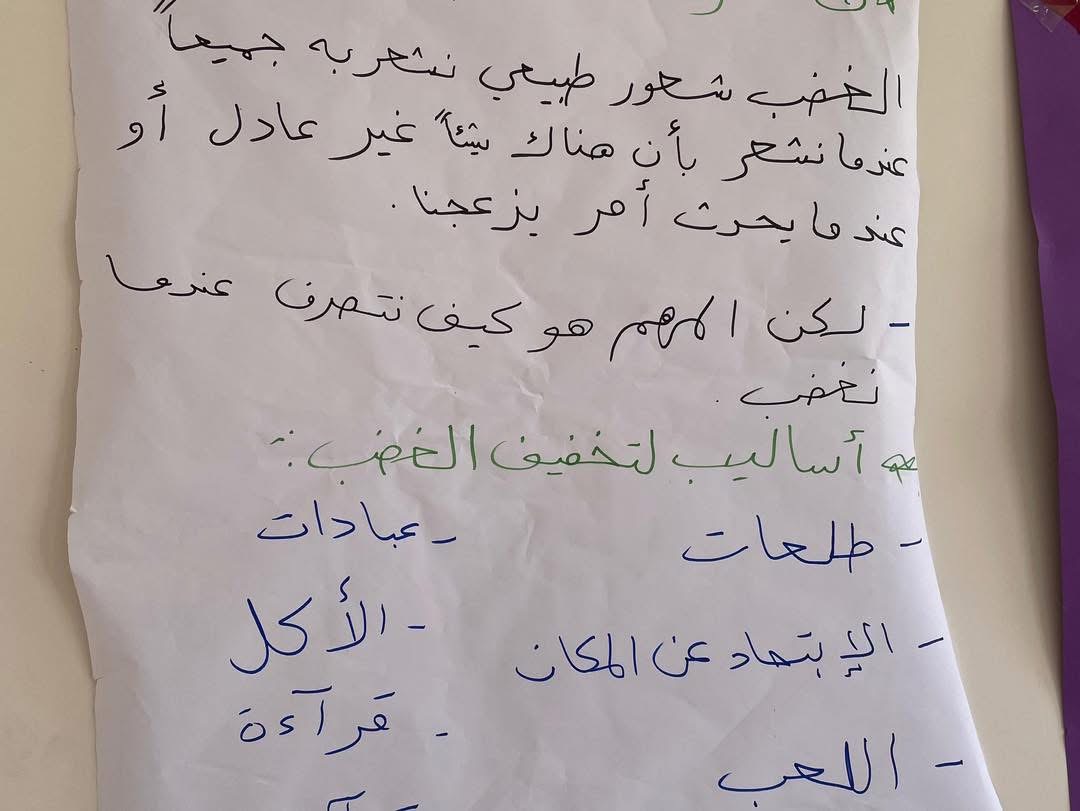 الغضب شعور طبيعي نشعر به جميعاً
عندما نشعر بأن هناك شئاً غير عادل أو
عندما يحدث أمر يزعجنا.
- لكن المهم هو كيف نتصرف عندما
نغضب.
أساليب لتخفيف الغضب:
- طلعات
- الإبتعاد عن المكان
- اللعب
- عبادات
- الأكل
- قرآءة